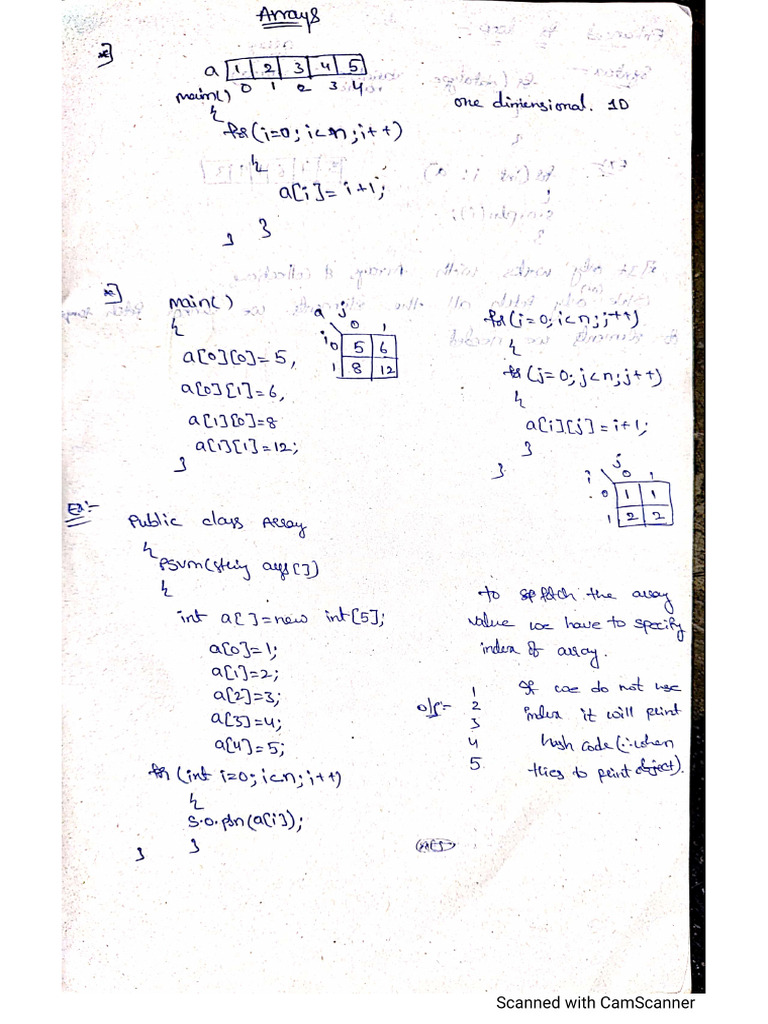 Arrays
*]
a 1 2 3 4 5
0 1 2 3 4
main()
{
for(i=0; i<n; i++)
{
a[i]= i+1;
}
}
one dimensional. 1D
*]
main()
{
a[0][0]=5,
a[0][1]=6,
a[1][0]=8
a[1][1]=12;
}
a j
0 1
i 0 5 6
1 8 12
for(i=0; i<n; i++)
{
for(j=0; j<n; j++)
{
a[i][j]=i+1;
}
}
j
i 0 1
0 1 1
1 2 2
Ex:-
Public class Array
{
Psvm(string args[])
{
int a[]=new int[5];
a[0]=1;
a[1]=2;
a[2]=3;
a[3]=4;
a[4]=5;
for(int i=0; i<n; i++)
{
S.o.pln(a[i]);
}
}
to fetch the array
value we have to specify
index of array.
o/p:- 1
2
3
4
5
If we do not use
index it will print
hash code (∵when
tries to print object).
Scanned with CamScanner